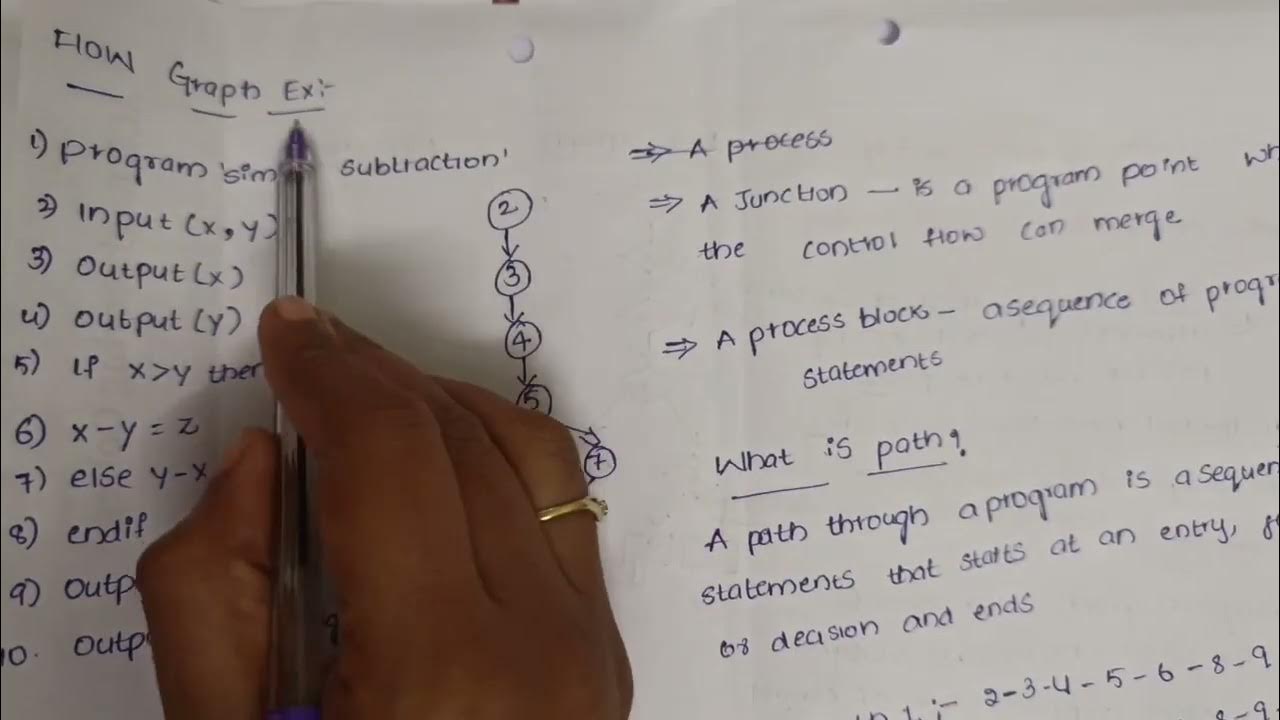 Flow Graph Ex:-
1) program 'sim subtraction'
2) Input (x, y)
3) output (x)
4) output (y)
5) If x>y then
6) x-y = z
7) else y-x
8) endif
9) outp
10. outp
2
3
4
5
7
⇒ A process
⇒ A Junction - is a program point
the control flow can merge
⇒ A process block - a sequence of progr
statements
What is path?
A path through a program is a sequen
statements that starts at an entry,
or decision and ends
1 :- 2-3-4-5-6-8-9
8-9